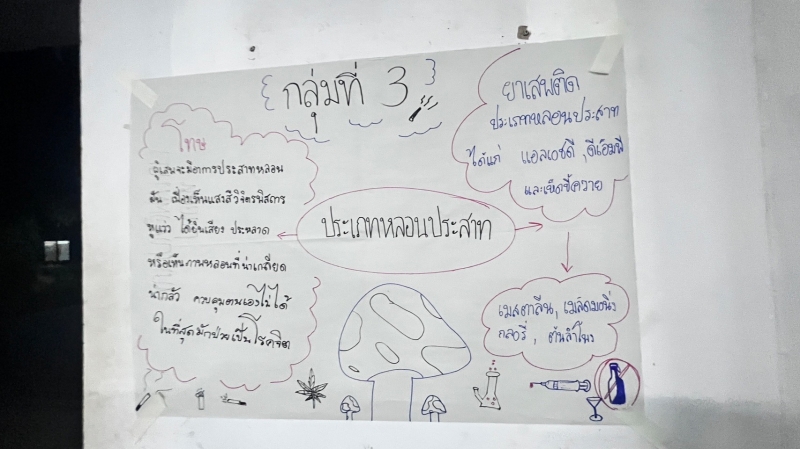 กลุ่มที่ 3
โทษ
ผู้เสพจะมีอาการประสาทหลอน
ฝัน เฟื่องเห็นแสงสีวิจิตรพิสดาร
หูแว่ว ได้ยินเสียง ประหลาด
หรือเห็นภาพหลอนที่น่าเกลียด
น่ากลัว ควบคุมตนเองไม่ได้
ในที่สุดมักป่วยเป็นโรคจิต
ประเภทหลอนประสาท
ยาเสพติด
ประเภทหลอนประสาท
ได้แก่ แอลเอสดี, ดีเอ็มที
และเห็ดขี้ควาย
เมสคาลีน, เมล็ดมอนิ่ง
กลอรี่, ต้นลำโพง